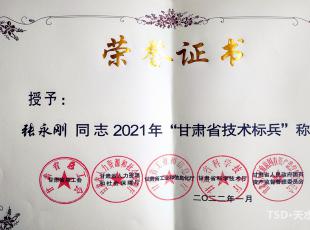 荣誉证书
授予：
张永刚 同志 2021年“甘肃省技术标兵”称
甘肃省总工会
甘肃省人力资源和社会保障厅
甘肃省工业和信息化厅
甘肃省科学技术厅
甘肃省人民政府国有资产监督管理委员会
二〇二二年一月